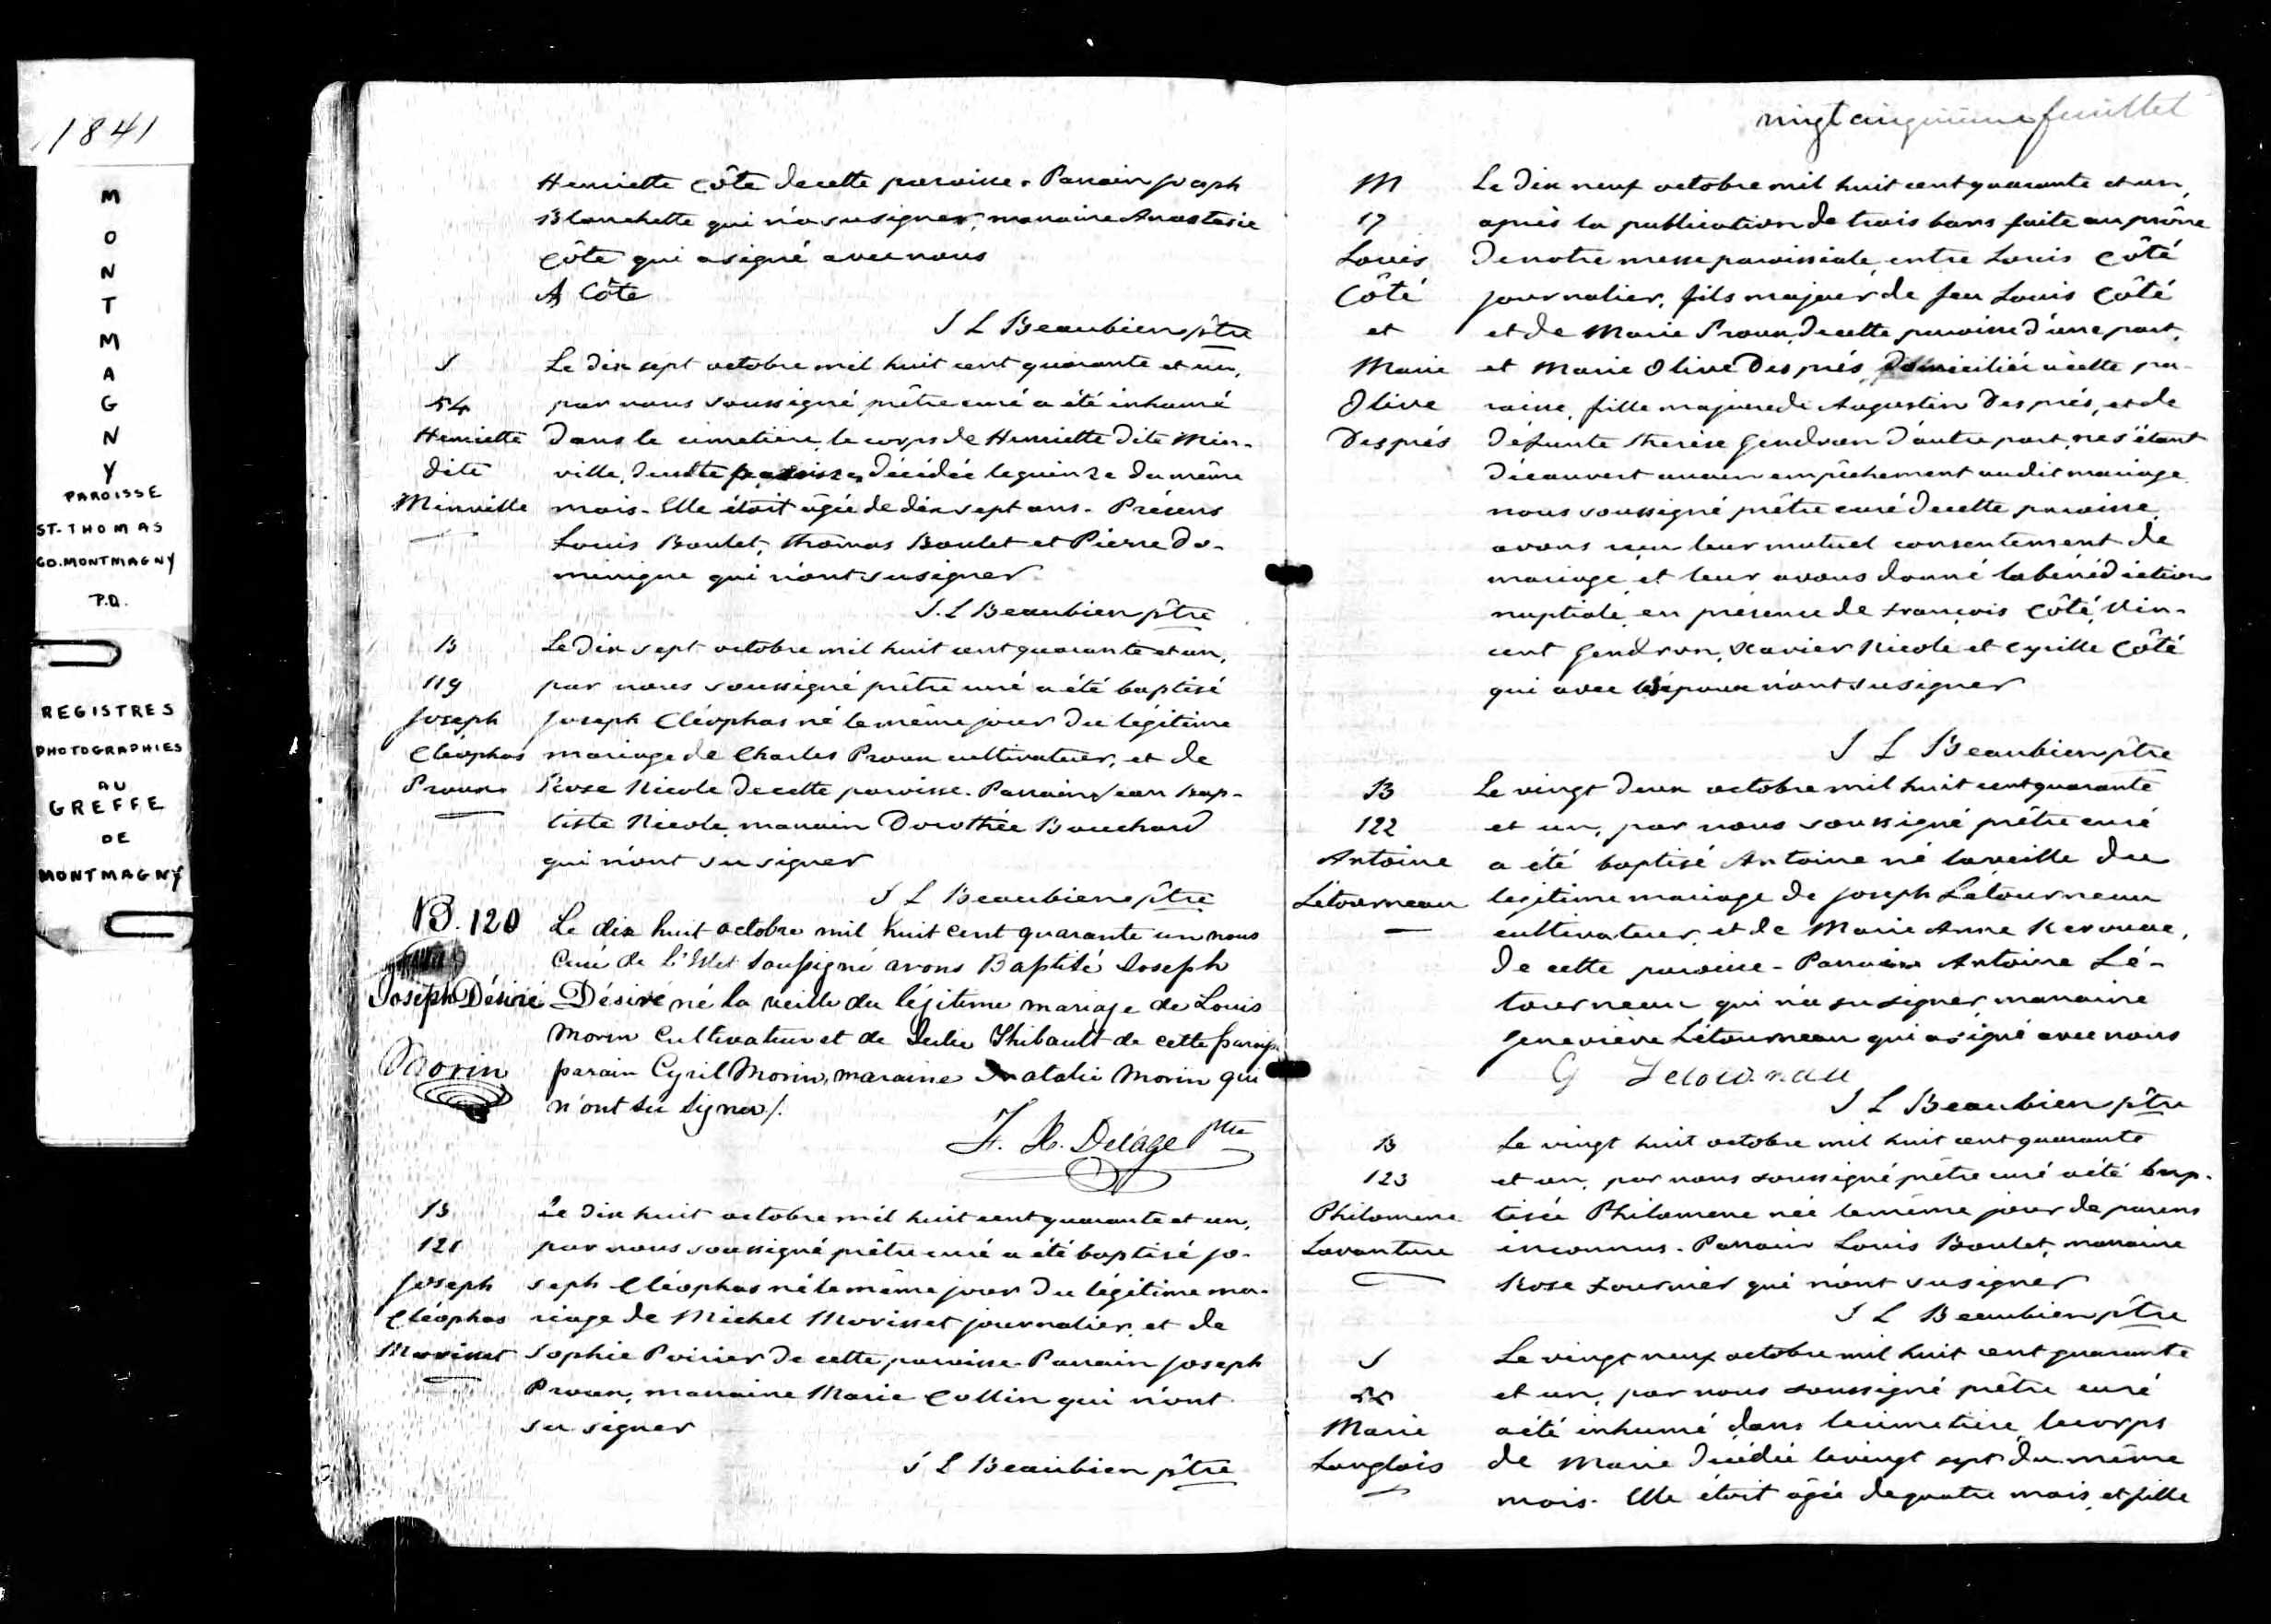 1841
M
O
N
T
M
A
G
N
Y
PAROISSE
ST. THOMAS
CO. MONTMAGNY
P.Q.
REGISTRES
PHOTOGRAPHIES
AU
GREFFE
DE
MONTMAGNY
Henriette Côté de cette paroisse. Parrain Joseph
Blanchette qui n'a su signer, marraine Anastasie
Côté qui a signé avec nous
A Côte
J L Beaubien ptre
S
54
Henriette
dite
Minville
Le dix sept octobre mil huit cent quarante et un,
par nous soussigné prêtre curé a été inhumé
dans le cimetière, le corps de Henriette dite Min-
ville, de cette paroisse, décédée le quinze du même
mois. Elle étoit agée de dix sept ans. Présens
Louis Boulet, Thomas Boulet et Pierre Do-
minique qui n'ont su signer
J. L Beaubien ptre
B
119
Joseph
Cléophas
Proux
Le dix sept octobre mil huit cent quarante et un,
par nous soussigné prêtre curé a été baptisé
Joseph Cléophas né le même jour du légitime
mariage de Charles Proux cultivateur, et de
Rose Nicole de cette paroisse. Parrain Jean Bap-
tiste Nicole, marrain Dorothée Bouchard
qui n'ont su signer
J L Beaubien ptre
B. 120
Joseph Désiré
Morin
Le dix huit octobre mil huit cent quarante un nous
Curé de l'Islet soussigné avons Baptisé Joseph
Désiré né la veille du légitime mariage de Louis
Morin Cultivateur et de Julie Thibault de cette paroisse
parain Cyril Morin, maraine Natalie Morin qui
n'ont su signer /.
F. X. Delâge ptre
B
121
Joseph
Cléophas
Morisset
Le dix huit octobre mil huit cent quarante et un,
par nous soussigné prêtre curé a été baptisé Jo-
seph Cléophas né le même jour du légitime ma-
riage de Michel Morisset journalier, et de
Sophie Poirier de cette paroisse. Parrain Joseph
Proux, marraine Marie Collin qui n'ont
su signer
J L Beaubien ptre
vingt cinquième feuillet
M
17
Louis
Côté
et
Marie
Olive
Després
Le dix neuf octobre mil huit cent quarante et un,
après la publication de trois bans faite au prône
de notre messe paroissiale, entre Louis Côté
journalier, fils majeur de feu Louis Côté
et de Marie Proux, de cette paroisse d'une part,
et Marie Olive Després, domiciliée à cette pa-
roisse, fille majeure de Augustin Després, et de
défunte Therèse Gendron d'autre part, ne s'étant
découvert aucun empêchement au dit mariage
nous soussigné prêtre curé de cette paroisse,
avons reçu leur mutuel consentement de
mariage, et leur avons donné la bénédiction
nuptiale, en présence de François Côté, Vin-
cent Gendron, Xavier Nicole et Cyrille Côté
qui avec les époux n'ont su signer
J L Beaubien ptre
B
122
Antoine
Létourneau
Le vingt deux octobre mil huit cent quarante
et un, par nous soussigné prêtre curé
a été baptisé Antoine né la veille du
legitime mariage de Joseph Letourneau
cultivateur, et de Marie Anne Kerouac,
de cette paroisse - Parrain Antoine Lé-
tourneau qui n'a su signer, marraine
Geneviève Létourneau qui a signé avec nous
G Letournau
J L Beaubien ptre
B
123
Philomene
Lavanture
Le vingt huit octobre mil huit cent quarante
et un, par nous soussigné prêtre curé a été bap-
tisée Philomene née le même jour de parens
inconnus. Parrain Louis Boulet, marraine
Rose Fournier qui n'ont su signer
J L Beaubien ptre
S
55
Marie
Langlois
Le vingt neuf octobre mil huit cent quarante
et un, par nous soussigné prêtre curé
a été inhumé dans le cimetière, le corps
de Marie décédée le vingt sept du même
mois. Elle étoit agée de quatre mois, et fille